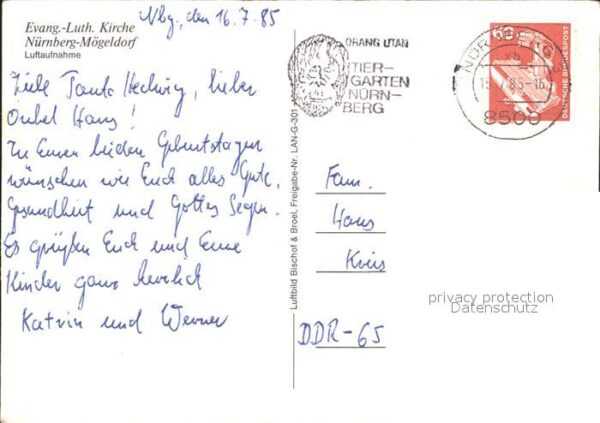 Evang.-Luth. Kirche
Nürnberg-Mögeldorf
Luftaufnahme
Nbg, den 16.7.85
Liebe Tante Hedwig, lieber
Onkel Hans!
Zu Euren beiden Geburtstagen
wünschen wir Euch alles Gute,
Gesundheit und Gottes Segen.
Es grüßen Euch und Eure
Kinder ganz herzlich
Katrin und Werner
Luftbild Bischof & Broel, Freigabe-Nr. LAN-G-301
ORANG UTAN
TIER-
GARTEN
NÜRN-
BERG
60
DEUTSCHE BUNDESPOST
NÜRNBERG
85-16
8500
Fam.
Hans
Kreis
DDR-65
privacy protection
Datenschutz